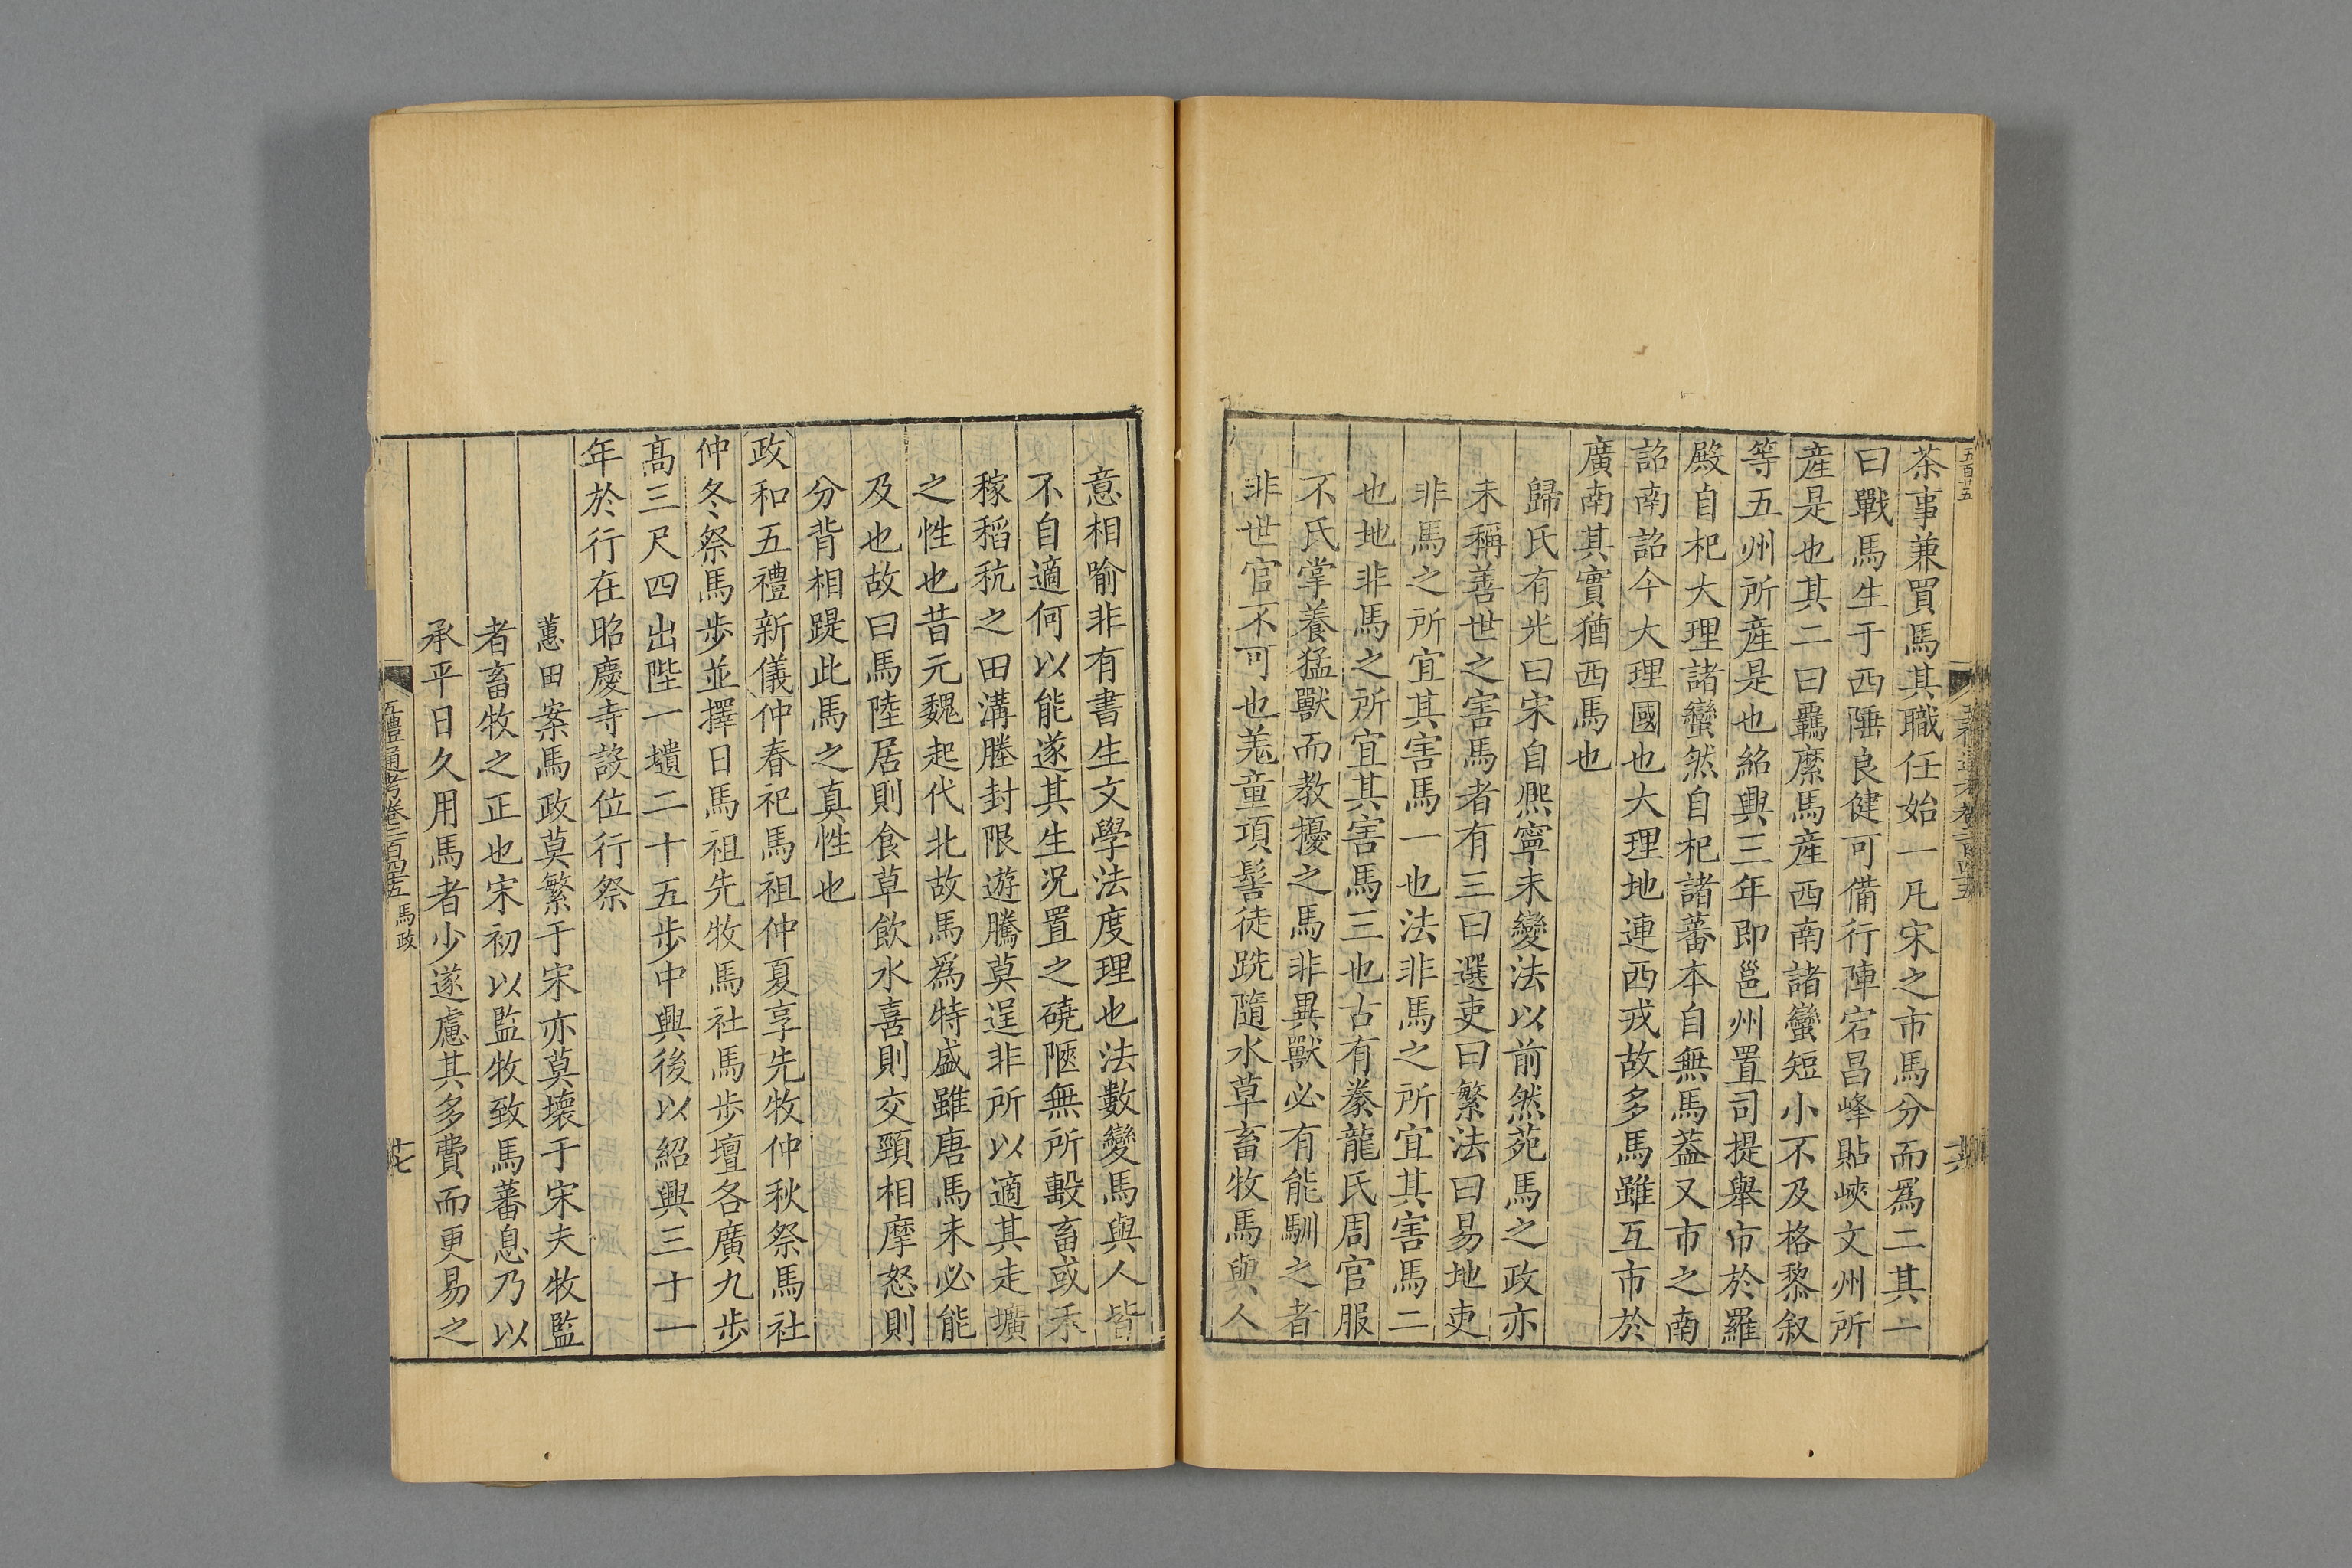 茶事兼買馬其職任始一凡宋之市馬分而爲二其一
曰戰馬生于西陲良健可備行陣宕昌峰貼峽文州所
産是也其二曰羈縻馬產西南諸蠻短小不及格黎叙
等五州所産是也紹興三年即邕州置司提舉市於羅
殿自杞大理諸蠻然自杞諸蕃本自無馬葢又市之南
詔南詔今大理國也大理地連西戎故多馬雖互市於
廣南其實猶西馬也
歸氏有光曰宋自熙寧未變法以前然苑馬之政亦
未稱善世之害馬者有三曰選吏曰繁法曰易地吏
非馬之所宜其害馬一也法非馬之所宜其害馬二
也地非馬之所宜其害馬三也古有豢龍氏周官服
不氏掌養猛獸而教擾之馬非異獸必有能馴之者
非世官不可也羌童項髻徒跣隨水草畜牧馬與人
意相喻非有書生文學法度理也法數變馬與人皆
不自適何以能遂其生况置之磽陋無所轂畜或禾
稼稻秔之田溝塍封限遊騰莫逞非所以適其走壙
之性也昔元魏起代北故馬爲特盛雖唐馬未必能
及也故曰馬陸居則食草飲水喜則交頸相摩怒則
分背相踶此馬之真性也
政和五禮新儀仲春祀馬祖仲夏享先牧仲秋祭馬社
仲冬祭馬步並擇日馬祖先牧馬社馬步壇各廣九步
高三尺四出陛一壝二十五步中興後以紹興三十一
年於行在昭慶寺設位行祭
蕙田案馬政莫繁于宋亦莫壞于宋夫牧監
者畜牧之正也宋初以監牧致馬蕃息乃以
承平日久用馬者少遂慮其多費而更易之
五禮通考卷二百四十五 馬政
十七